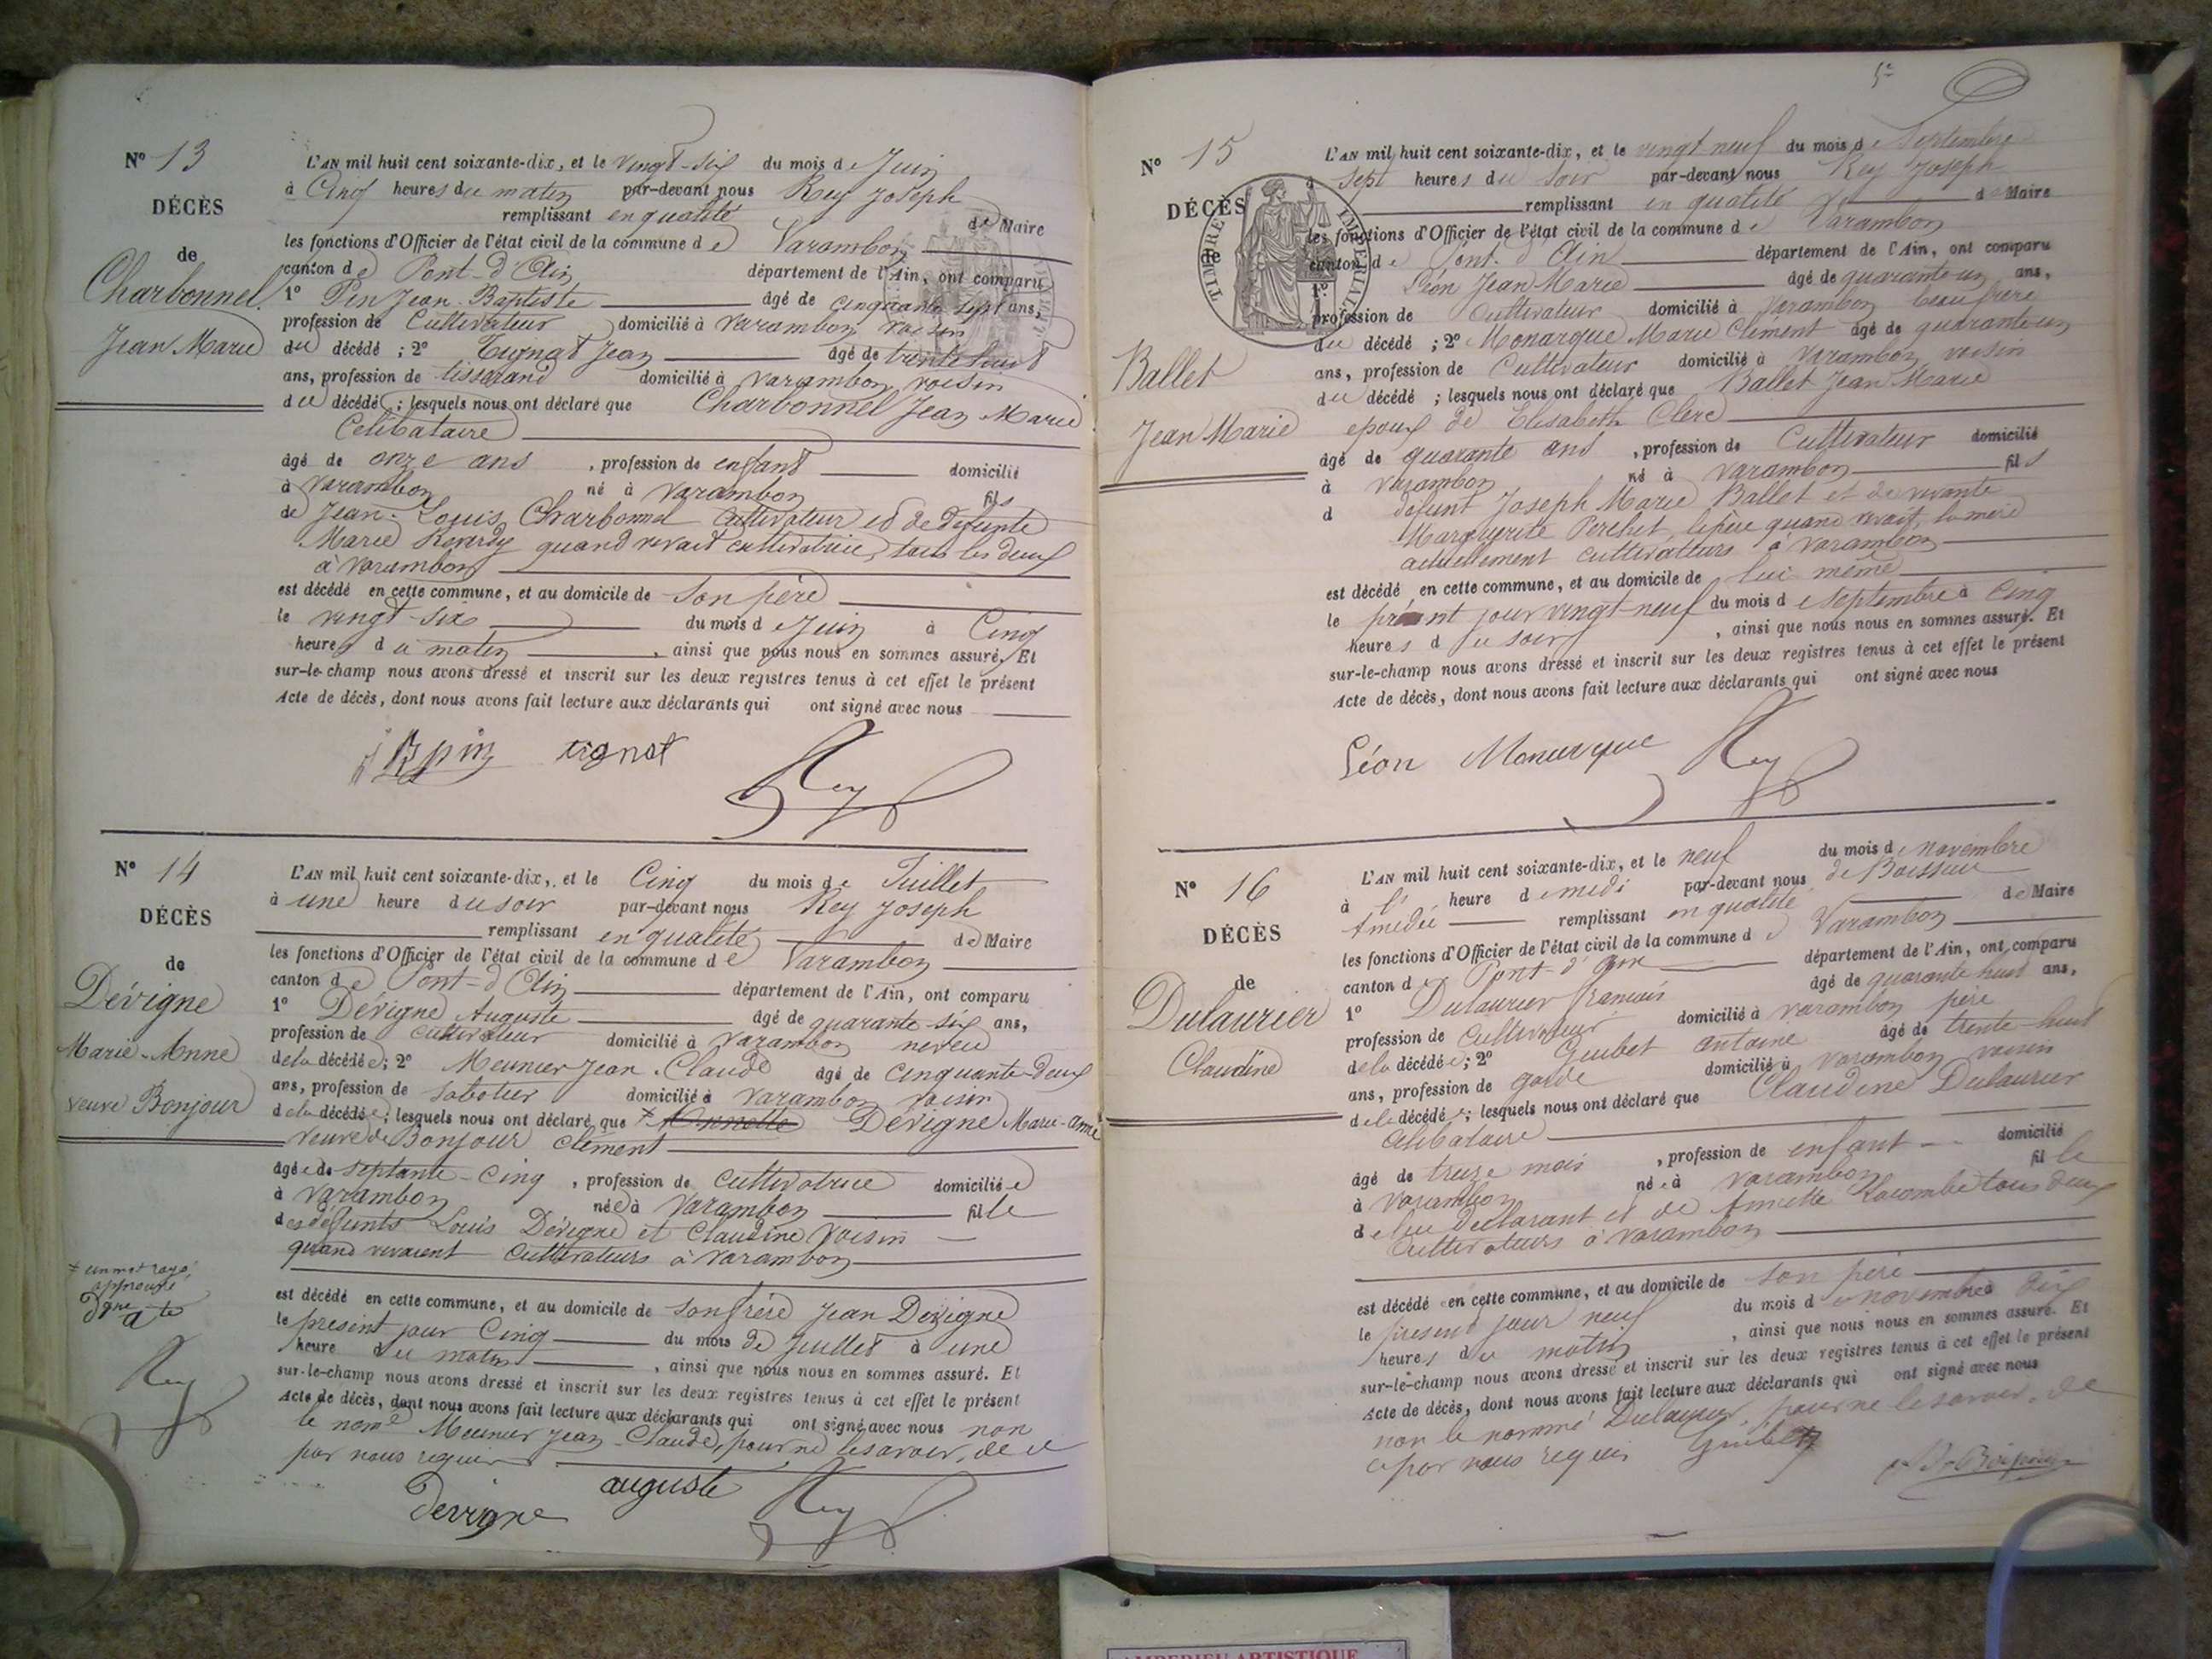 Nº 13
DÉCÈS
de
Charbonnel
Jean Marie
L'AN mil huit cent soixante-dix, et le vingt-six du mois de Juin
à Cinq heures du matin par-devant nous Rey Joseph
remplissant en qualité de Maire
les fonctions d'Officier de l'état civil de la commune de Varambon
canton de Pont-d'Ain département de l'Ain, ont comparu
1º Pin Jean-Baptiste âgé de cinquante sept ans,
profession de Cultivateur domicilié à Varambon voisin
du décédé ; 2º Tignat Jean âgé de trente huit
ans, profession de tisserand domicilié à Varambon voisin
du décédé ; lesquels nous ont déclaré que Charbonnel Jean Marie
Celibataire
âgé de onze ans , profession de enfant domicilié
à Varambon né à Varambon fils
de Jean-Louis Charbonnel Cultivateur et de defunte
Marie quand vivait cultivatrice, tous les deux
à Varambon
est décédé en cette commune, et au domicile de son père
le vingt-six du mois de Juin à Cinq
heures du matin , ainsi que nous nous en sommes assuré. Et
sur-le-champ nous avons dressé et inscrit sur les deux registres tenus à cet effet le présent
Acte de décès, dont nous avons fait lecture aux déclarants qui ont signé avec nous
pin tignat Rey
Nº 14
DÉCÈS
de
Dévigne
Marie-Anne
veuve Bonjour
L'AN mil huit cent soixante-dix, et le Cinq du mois de Juillet
à une heure du soir par-devant nous Rey Joseph
remplissant en qualité de Maire
les fonctions d'Officier de l'état civil de la commune de Varambon
canton de Pont-d'Ain département de l'Ain, ont comparu
1º Dévigne Auguste âgé de quarante-six ans,
profession de cultivateur domicilié à Varambon neveu
de la décédée; 2º Meunier Jean-Claude âgé de cinquante-deux
ans, profession de sabotier domicilié à Varambon voisin
de la décédée; lesquels nous ont déclaré que Dévigne Marie-Anne
veuve de Bonjour Clément
âgée de septante-cinq , profession de cultivatrice domiciliée
à Varambon née à Varambon fille
des défunts Louis Dévigne et Claudine Voisin
quand vivaient cultivateurs à Varambon
≠ un mot rayé
approuvé
Rey
est décédé en cette commune, et au domicile de son frère Jean Dévigne
le présent jour Cinq du mois de Juillet à une
heure du matin , ainsi que nous nous en sommes assuré. Et
sur-le-champ nous avons dressé et inscrit sur les deux registres tenus à cet effet le présent
Acte de décès, dont nous avons fait lecture aux déclarants qui ont signé avec nous non
le nomé Meunier Jean-Claude, pour ne le savoir, de ce
par nous requis
Devigne auguste Rey
5e
Nº 15
DÉCÈS
de
Ballet
Jean Marie
TIMBRE IMPERIAL
L'AN mil huit cent soixante-dix, et le vingt neuf du mois de Septembre
à sept heures du soir par-devant nous Rey Joseph
remplissant en qualité de Maire
les fonctions d'Officier de l'état civil de la commune de Varambon
canton de Pont-d'Ain département de l'Ain, ont comparu
1º Léon Jean Marie âgé de quarante-un ans,
profession de Cultivateur domicilié à Varambon beau frère
du décédé ; 2º Monarque Marie Clément âgé de quarante-un
ans, profession de Cultivateur domicilié à Varambon voisin
du décédé ; lesquels nous ont déclaré que Ballet Jean Marie
époux de Elisabeth Clerc
âgé de quarante ans , profession de Cultivateur domicilié
à Varambon né à Varambon fils
d défunt Joseph Marie Ballet et de vivante
Marguerite le père quand vivait, la mère
actuellement cultivateurs à Varambon
est décédé en cette commune, et au domicile de lui même
le présent jour vingt-neuf du mois de Septembre à Cinq
heures du soir , ainsi que nous nous en sommes assuré. Et
sur-le-champ nous avons dressé et inscrit sur les deux registres tenus à cet effet le présent
Acte de décès, dont nous avons fait lecture aux déclarants qui ont signé avec nous
Léon Monarque Rey
Nº 16
DÉCÈS
de
Dulaurier
Claudine
L'AN mil huit cent soixante-dix, et le neuf du mois de novembre
à l' heure de midi par-devant nous de Boissieu
Amédée remplissant en qualité de Maire
les fonctions d'Officier de l'état civil de la commune de Varambon
canton de Pont-d'Ain département de l'Ain, ont comparu
1º Dulaurier français âgé de quarante huit ans,
profession de cultivateur domicilié à Varambon père
de la décédée; 2º Guibet antoine âgé de trente-huit
ans, profession de garde domicilié à Varambon voisin
de la décédée; lesquels nous ont déclaré que Claudine Dulaurier
Célibataire
âgé de treize mois , profession de enfant domicilié
à Varambon née à Varambon fille
de lui Déclarant et de Annette Lacombe tous deux
Cultivateurs à Varambon
est décédé en cette commune, et au domicile de son père
le présent jour neuf du mois de novembre à dix
heures du matin , ainsi que nous nous en sommes assuré. Et
sur-le-champ nous avons dressé et inscrit sur les deux registres tenus à cet effet le présent
Acte de décès, dont nous avons fait lecture aux déclarants qui ont signé avec nous
non le nommé Dulaurier, pour ne le savoir, de
ce par nous requis Guibet
AMBERIEU ARTISTIQUE